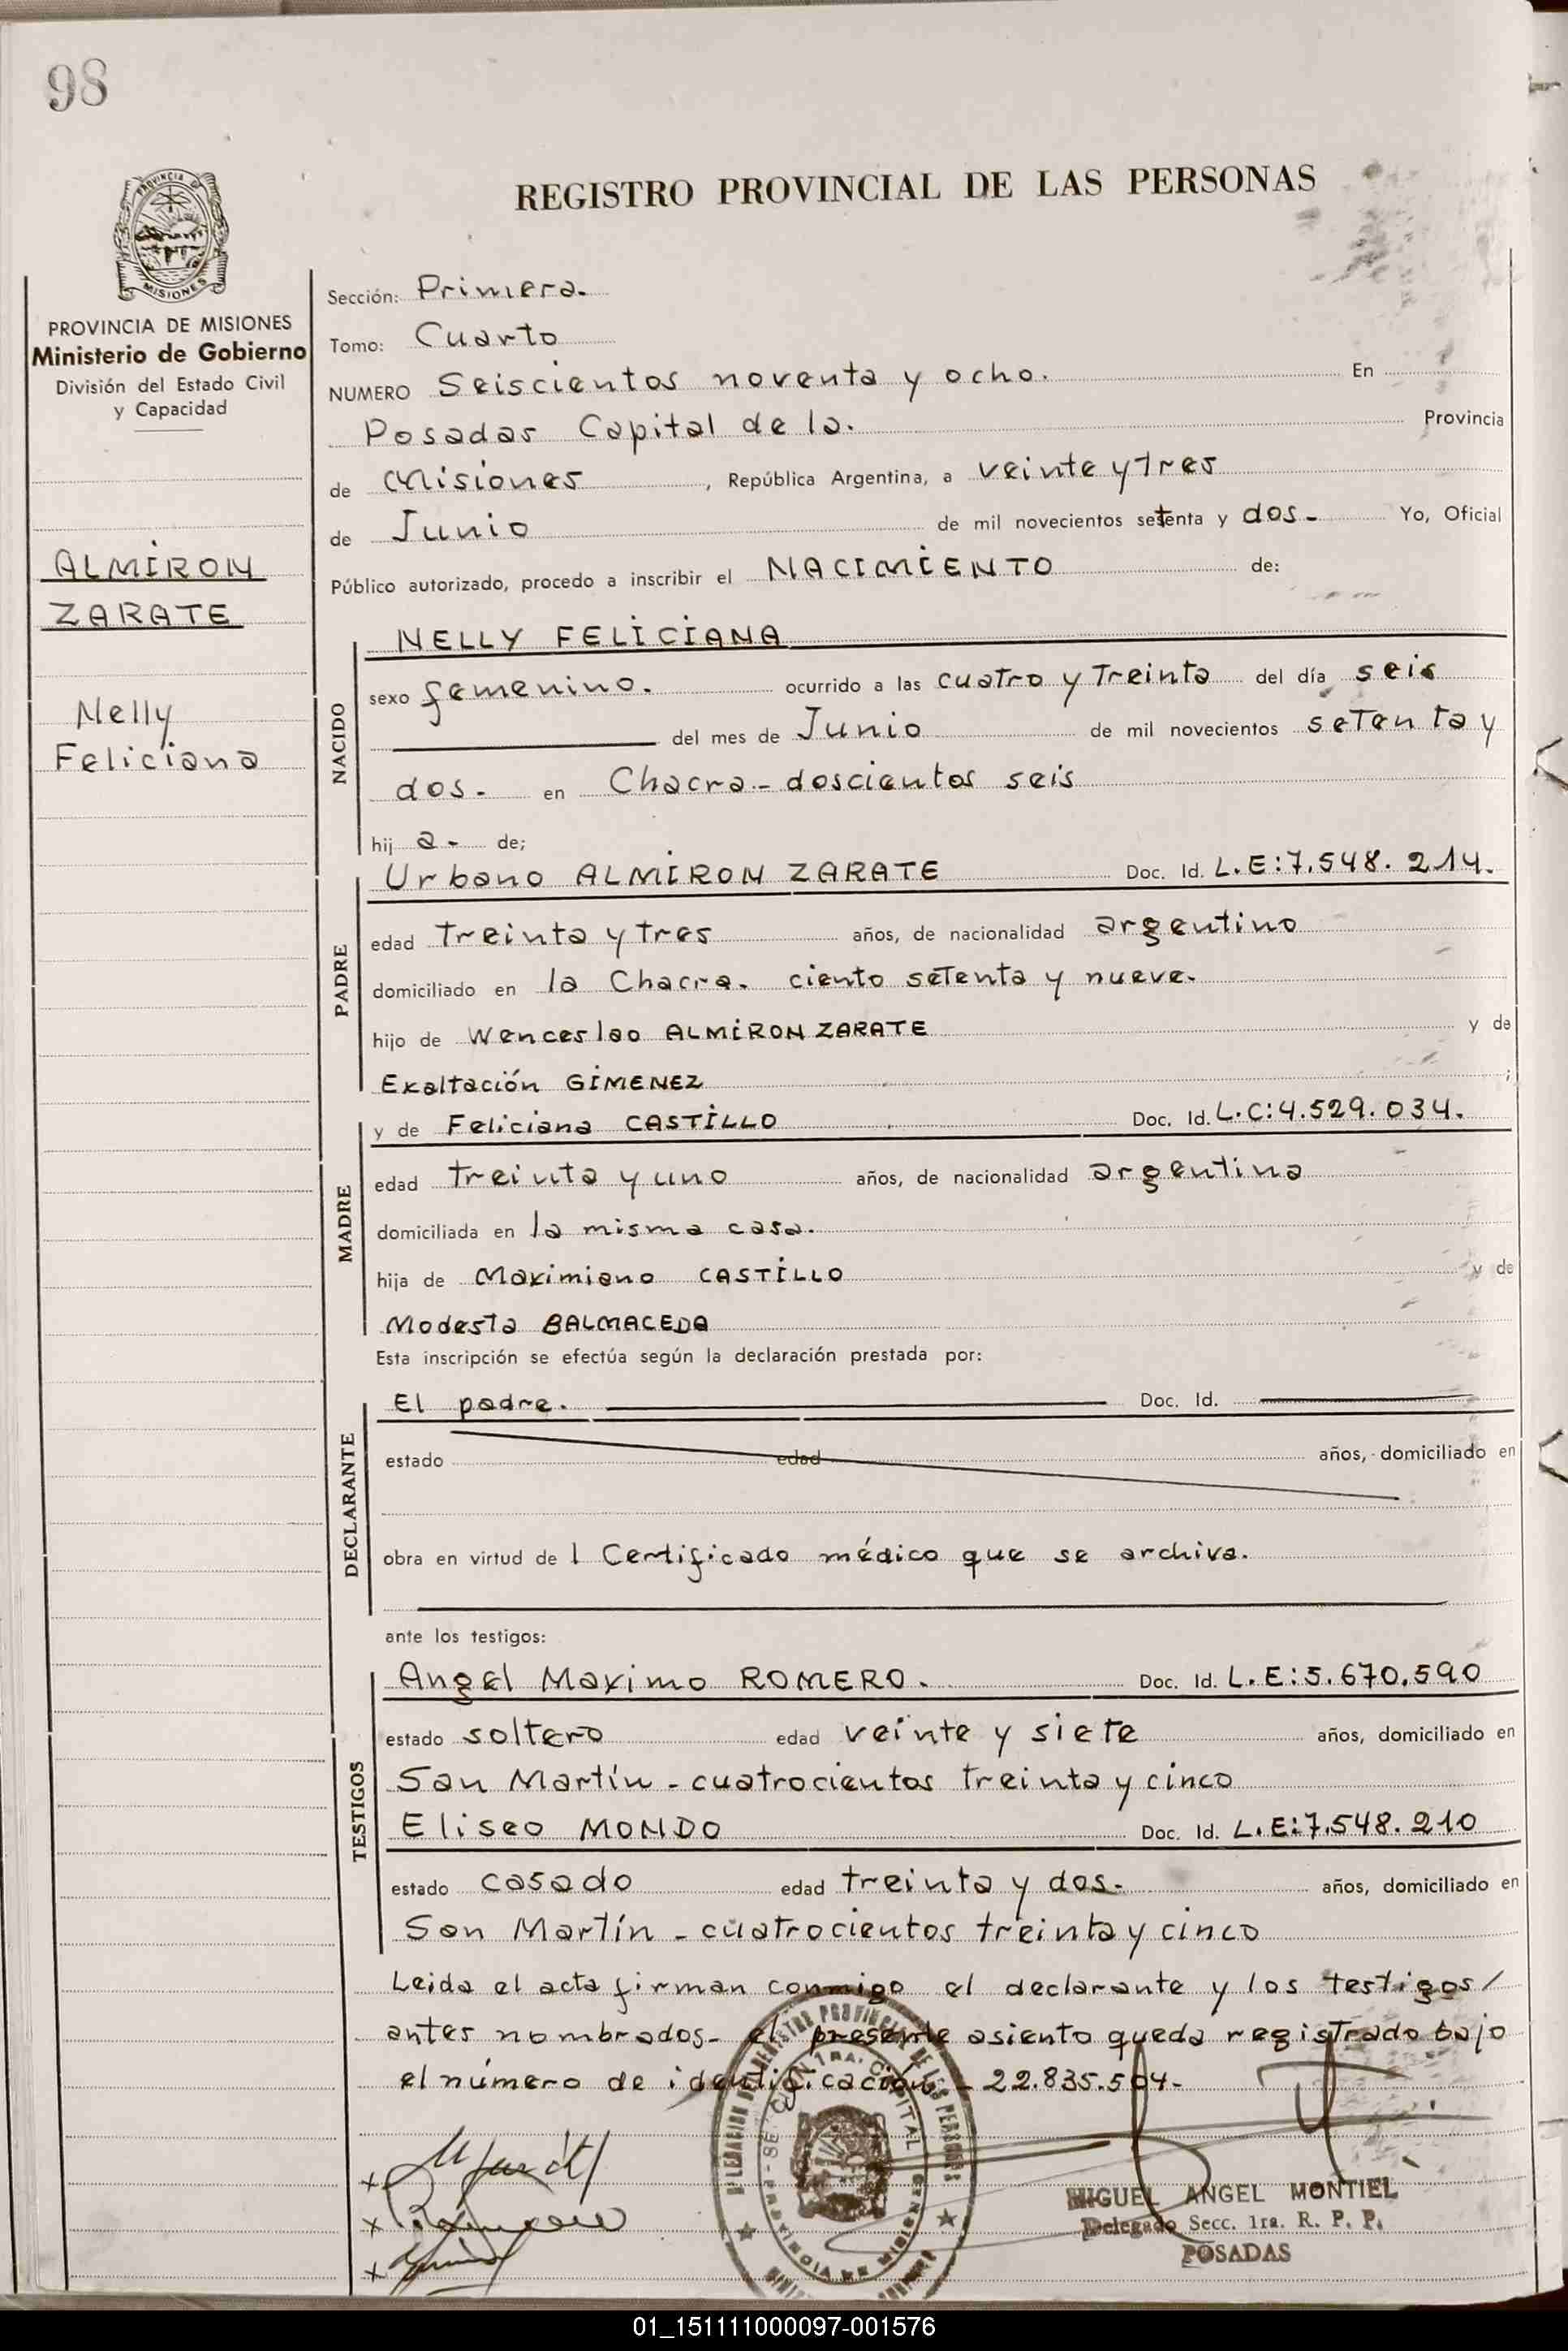 98
PROVINCIA DE MISIONES
REGISTRO PROVINCIAL DE LAS PERSONAS
PROVINCIA DE MISIONES
Ministerio de Gobierno
División del Estado Civil
y Capacidad
ALMIRON
ZARATE
Nelly
Feliciana
Sección: Primera.
Tomo: Cuarto
NUMERO Seiscientos noventa y ocho. En
Posadas Capital de la. Provincia
de Misiones, República Argentina, a veinte y tres
de Junio de mil novecientos setenta y dos- Yo, Oficial
Público autorizado, procedo a inscribir el NACIMIENTO de:
NACIDO
NELLY FELICIANA
sexo femenino. ocurrido a las cuatro y Treinta del día seis
del mes de Junio de mil novecientos setenta y
dos- en Chacra- doscientos seis
hij a- de;
PADRE
Urbano ALMIRON ZARATE Doc. Id. L.E:7.548.214.
edad treinta y tres años, de nacionalidad argentino
domiciliado en la Chacra- ciento setenta y nueve-
hijo de Wenceslao ALMIRON ZARATE y de
Exaltación GIMENEZ ;
MADRE
y de Feliciana CASTILLO Doc. Id. L.C:4.529.034.
edad treinta y uno años, de nacionalidad argentina
domiciliada en la misma casa-
hija de Maximiano CASTILLO y de
Modesta BALMACEDA
Esta inscripción se efectúa según la declaración prestada por:
DECLARANTE
El padre. Doc. Id.
estado edad años, domiciliado en
obra en virtud de l Certificado médico que se archiva.
ante los testigos:
TESTIGOS
Angel Maximo ROMERO. Doc. Id. L.E:5.670.590
estado soltero edad veinte y siete años, domiciliado en
San Martín - cuatrocientos treinta y cinco
Eliseo MONDO Doc. Id. L.E:7.548.210
estado casado edad treinta y dos- años, domiciliado en
San Martín - cuatrocientos treinta y cinco
Leida el acta firman conmigo el declarante y los testigos/
antes nombrados- el presente asiento queda registrado bajo
el número de identificación - 22.835.504-
MIGUEL ANGEL MONTIEL
Delegado Secc. 1ra. R. P. P.
POSADAS
01_151111000097-001576